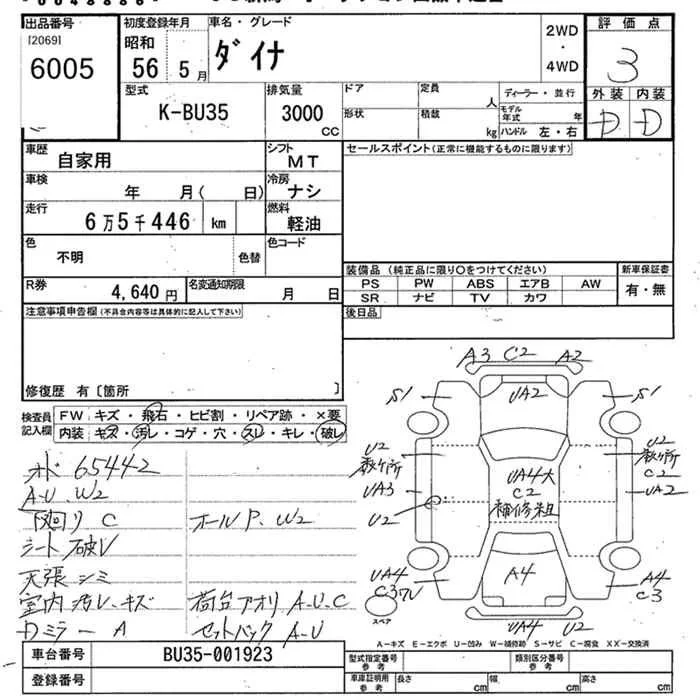 出品番号
[2069]
6005
初度登録年月
昭和
56 5月
車名・グレード
ダイナ
2WD
・
4WD
評価点
3
外装 内装
D D
型式
K-BU35
排気量
3000
CC
ドア
定員
人
形状
積載
kg
ディーラー・並行
モデル
年式
年
ハンドル 左・右
車歴
自家用
シフト
MT
車検
年 月( 日)
冷房
ナシ
走行
6万5千446 km
燃料
軽油
色
不明
色替
色コード
R券
4,640 円
名変通知期限
月 日
注意事項申告欄 (不具合内容等は具体的に記入して下さい)
修復歴 有〔箇所 〕
セールスポイント(正常に機能するものに限ります)
装備品 (純正品に限り○をつけてください)
新車保証書
PS PW ABS エアB AW
有・無
SR ナビ TV カワ
後日品
検査員
記入欄
FW キズ・飛石・ヒビ割・リペア跡・×要
内装 キズ・汚レ・コゲ・穴・スレ・キレ・破レ
オド 65442
A-U.W2
下回り C
ホールP.W2
シート破レ
天張シミ
室内汚レ.キズ
荷台アオリ A.U.C
Dミラー A
セットバック A-U
A3 C2 A2
S1
UA2
S1
U2
数ヶ所
UA3
U2
UA4大
C2
補修粗
U2
数ヶ所
C2
UA2
UA4
A4
A4
C3
UA4 U2
スペア
A=キズ E=エクボ U=凹み W=補修跡 S=サビ C=腐食 XX=交換済
車台番号
BU35-001923
登録番号
型式指定番号
参考
類別区分番号
参考
車庫証明用
参考
長さ cm
幅 cm
高さ cm